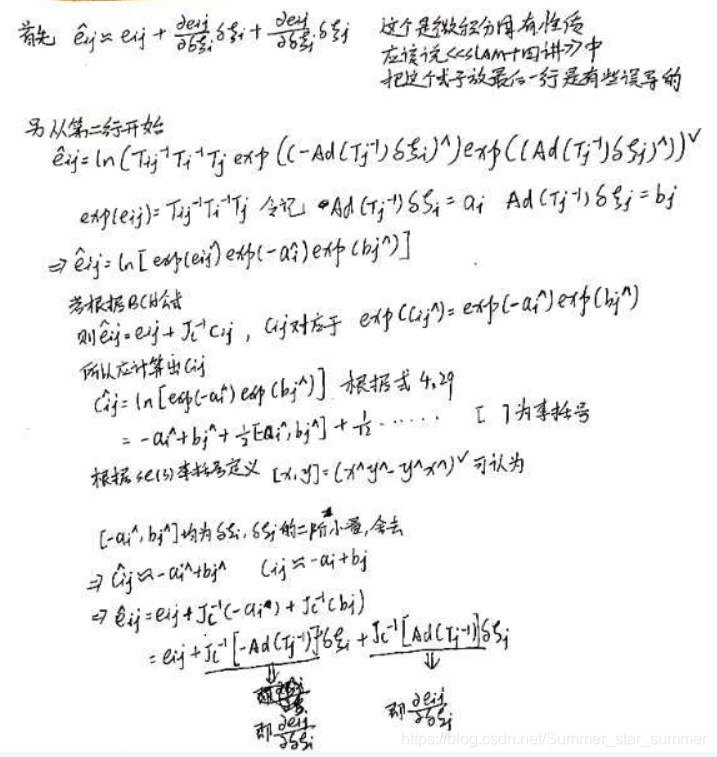 首先 êij ≈ eij + ∂eij/∂δξi δξi + ∂eij/∂δξj δξj 这个是微积分固有性质
应该说<<SLAM十四讲>>中
把这个式子放最后一行是有些误导的
另从第二行开始
êij = ln(Tij⁻¹Ti⁻¹Tj exp((-Ad(Tj⁻¹)δξi)^)exp((Ad(Tj⁻¹)δξj)^))ˇ
exp(eij) = Tij⁻¹Ti⁻¹Tj 令记 Ad(Tj⁻¹)δξi = ai Ad(Tj⁻¹)δξj = bj
⇒ êij = ln[exp(eij^)exp(-ai^)exp(bj^)]
若根据BCH公式
则êij = eij + Jc⁻¹Cij , Cij对应于 exp(Cij^) = exp(-ai^)exp(bj^)
所以应计算出Cij
Cij^ = ln[exp(-ai^)exp(bj^)] 根据式4.29
= -ai^+bj^+½[-ai^,bj^]+1/12 ······ [ ]为李括号
根据se(3)李括号定义 [x,y]=(x^y^-y^x^)ˇ 可认为
[-ai^,bj^]均为δξi,δξj的二阶小量,舍去
⇒ Cij^ ≈ -ai^+bj^ Cij ≈ -ai+bj
⇒ êij = eij + Jc⁻¹(-ai) + Jc⁻¹(bj)
= eij + Jc⁻¹[-Ad(Tj⁻¹)]δξi + Jc⁻¹[Ad(Tj⁻¹)]δξj
⇓ ⇓
即∂eij/∂δξi 即∂eij/∂δξj
https://blog.csdn.net/Summer_star_summer